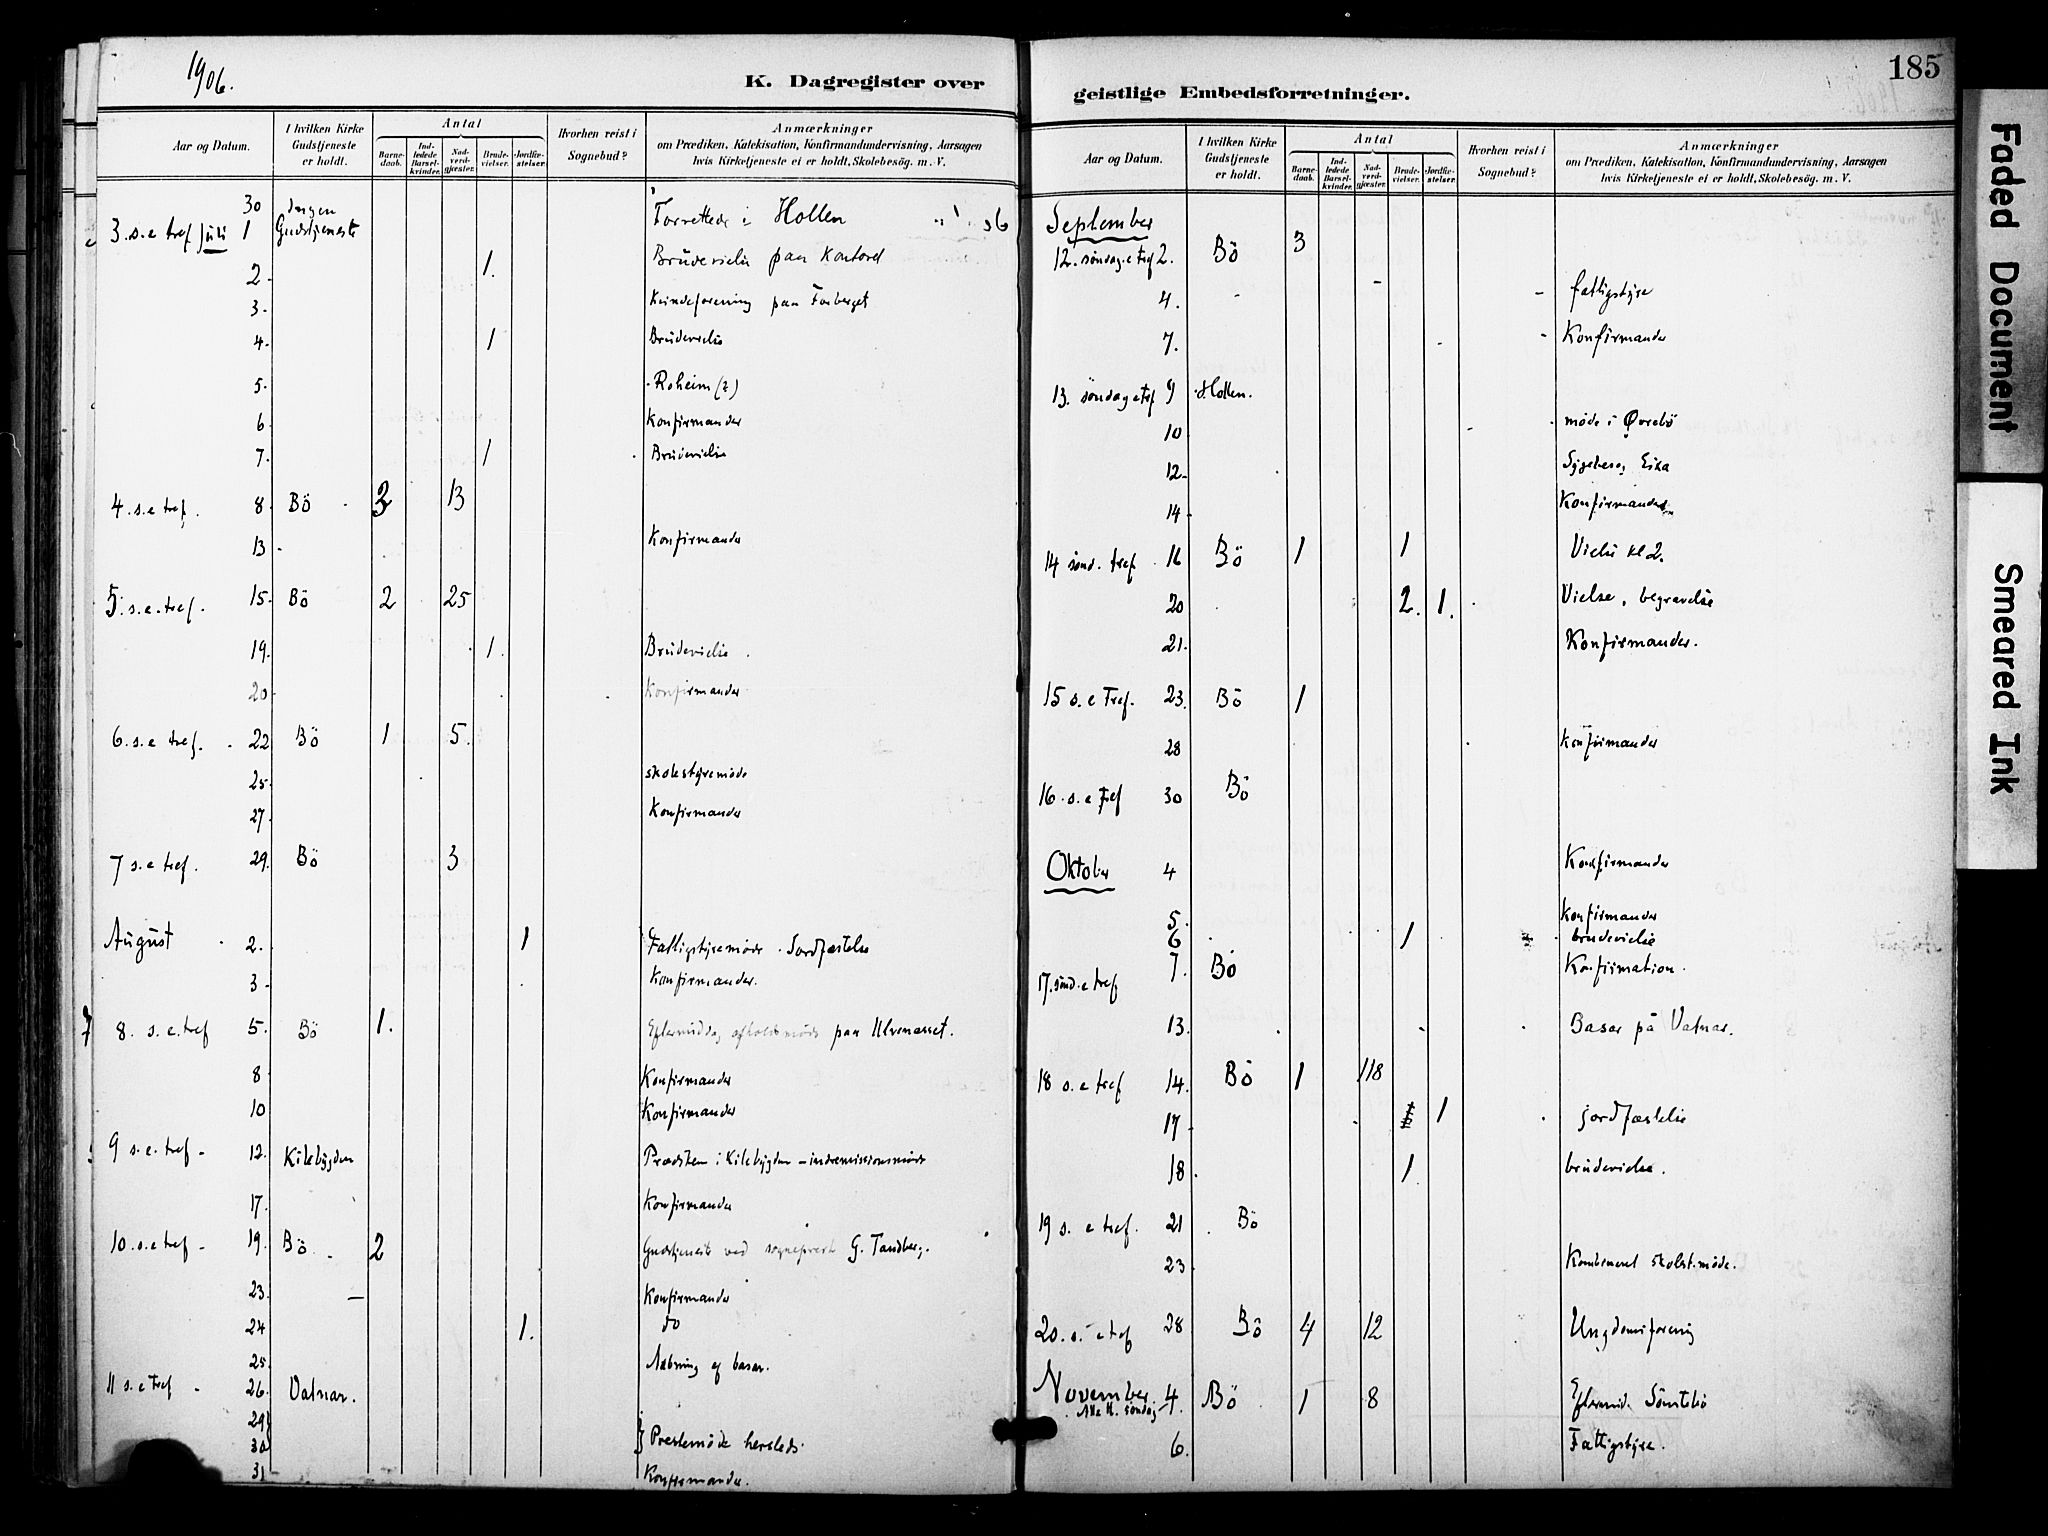 1906.
K. Dagregister over
Aar og Datum.
I hvilken Kirke Gudstjeneste er holdt.
Antal
Barnedaab.
Indledede Barselkvinder.
Nadverdgjæster.
Brudevielser.
Jordfæstelser.
Hvorhen reist i Sognebud?
Anmærkninger
om Prædiken, Katekisation, Konfirmandundervisning, Aarsagen
hvis Kirketjeneste ei er holdt, Skolebesøg. m. V.
30 Ingen
3. s. e tref Juli 1 Gudstjeneste Forrettede i Hollen
2. 1. Brudevielse paa Kontoret
3. Kvindeforening paa Forberget
4. 1 Brudevielse
5. Roheim (2)
6. Konfirmander
7. 1 Brudevielse
4. s. e tref. 8 Bö 3 13
13 Konfirmander
5. s. e. tref. 15. Bö 2 25
19. 1. Brudevielse.
20 Konfirmander
6. s. e tref. 22 Bö 1 5.
25. skolestyremöde
27. Konfirmander
7 s. e tref. 29. Bö 3
August 2. 1 Fattigstyremöde. Jordfæstelse
3 Konfirmander.
8. s. e. tref 5. Bö 1. Eftermiddag paa Ulvenasset.
8 Konfirmander
10 Konfirmander
9 s. e. tref. 12. Kilebygden Præsten i Kilebygden - indremissionsmöde
17. Konfirmander
10. s. e tref. 19. Bö 2 Gudstjeneste ved sogneprest G. Tandberg.
23. Konfirmander
24 1. do
25. Aabning af basar.
11 s. e tref 26. Valnar.
29
30 Prestemöde
31 Konfirmander.
185
geistlige Embedsforretninger.
Aar og Datum.
I hvilken Kirke Gudstjeneste er holdt.
Antal
Barnedaab.
Indledede Barselkvinder.
Nadverdgjæster.
Brudevielser.
Jordfæstelser.
Hvorhen reist i Sognebud?
Anmærkninger
om Prædiken, Katekisation, Konfirmandundervisning, Aarsagen
hvis Kirketjeneste ei er holdt, Skolebesög. m. V.
September
12. söndag e tref 2. Bö 3
4. fattigstyre
7. Konfirmander
13. söndag e tref 9 Hollen.
10 möde i Øvrebö
12 Sygebesög Eika
14 Konfirmander
14 sönd. tref. 16 Bö 1 1 Vielse kl 2.
20 2. 1. Vielse, begravelse
21. Konfirmander.
15 s. e Tref. 23. Bö 1
28 Konfirmander
16. s. e tref 30 Bö
Oktober 4 Konfirmander
5. Konfirmander
6 1 brudevielse
17. sönd. e tref 7. Bö Konfirmation.
13. Basar på Valnar.
18 s. e tref 14. Bö 1 118
17 1 jordfæstelse
18 1 brudevielse.
19 s. e tref. 21 Bö
23 Kombineret skolest.möde.
20. s. e tref 28 Bö 4 12 Ungdomsforening
November. 4 Bö 1 8 Eftermid. Sönstebö
Alle H. söndag
6. Fattigstyre.
Faded Document
Smeared Ink